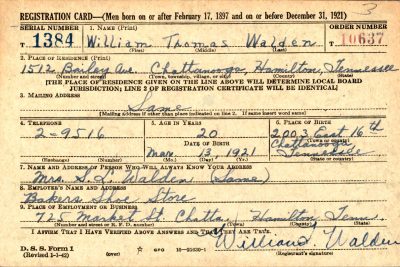 3
REGISTRATION CARD—(Men born on or after February 17, 1897 and on or before December 31, 1921)
SERIAL NUMBER 1. NAME (Print) ORDER NUMBER
T 1384 William Thomas Walden T 10637
(First) (Middle) (Last)
2. PLACE OF RESIDENCE (Print)
1512 Bailey Ave. Chattanooga Hamilton, Tennessee
(Number and street) (Town, township, village, or city) (County) (State)
[THE PLACE OF RESIDENCE GIVEN ON THE LINE ABOVE WILL DETERMINE LOCAL BOARD
JURISDICTION; LINE 2 OF REGISTRATION CERTIFICATE WILL BE IDENTICAL]
3. MAILING ADDRESS
Same
[Mailing address if other than place indicated on line 2. If same insert word same]
4. TELEPHONE 5. AGE IN YEARS 6. PLACE OF BIRTH
2-9516 20 2003 East 16th
DATE OF BIRTH Chattanooga
(Town or county)
Mar. 13, 1921 Tennessee
(Exchange) (Number) (Mo.) (Day) (Yr.) (State or country)
7. NAME AND ADDRESS OF PERSON WHO WILL ALWAYS KNOW YOUR ADDRESS
Mrs. Walden (Same)
8. EMPLOYER'S NAME AND ADDRESS
Bakers Shoe Store
9. PLACE OF EMPLOYMENT OR BUSINESS
725 Market St. Chatta. Hamilton Tenn.
(Number and street or R. F. D. number) (Town) (County) (State)
I AFFIRM THAT I HAVE VERIFIED ABOVE ANSWERS AND THAT THEY ARE TRUE.
D. S. S. Form 1
(Revised 1-1-42) GPO 16-21630-1 William T. Walden
(Registrant's signature)